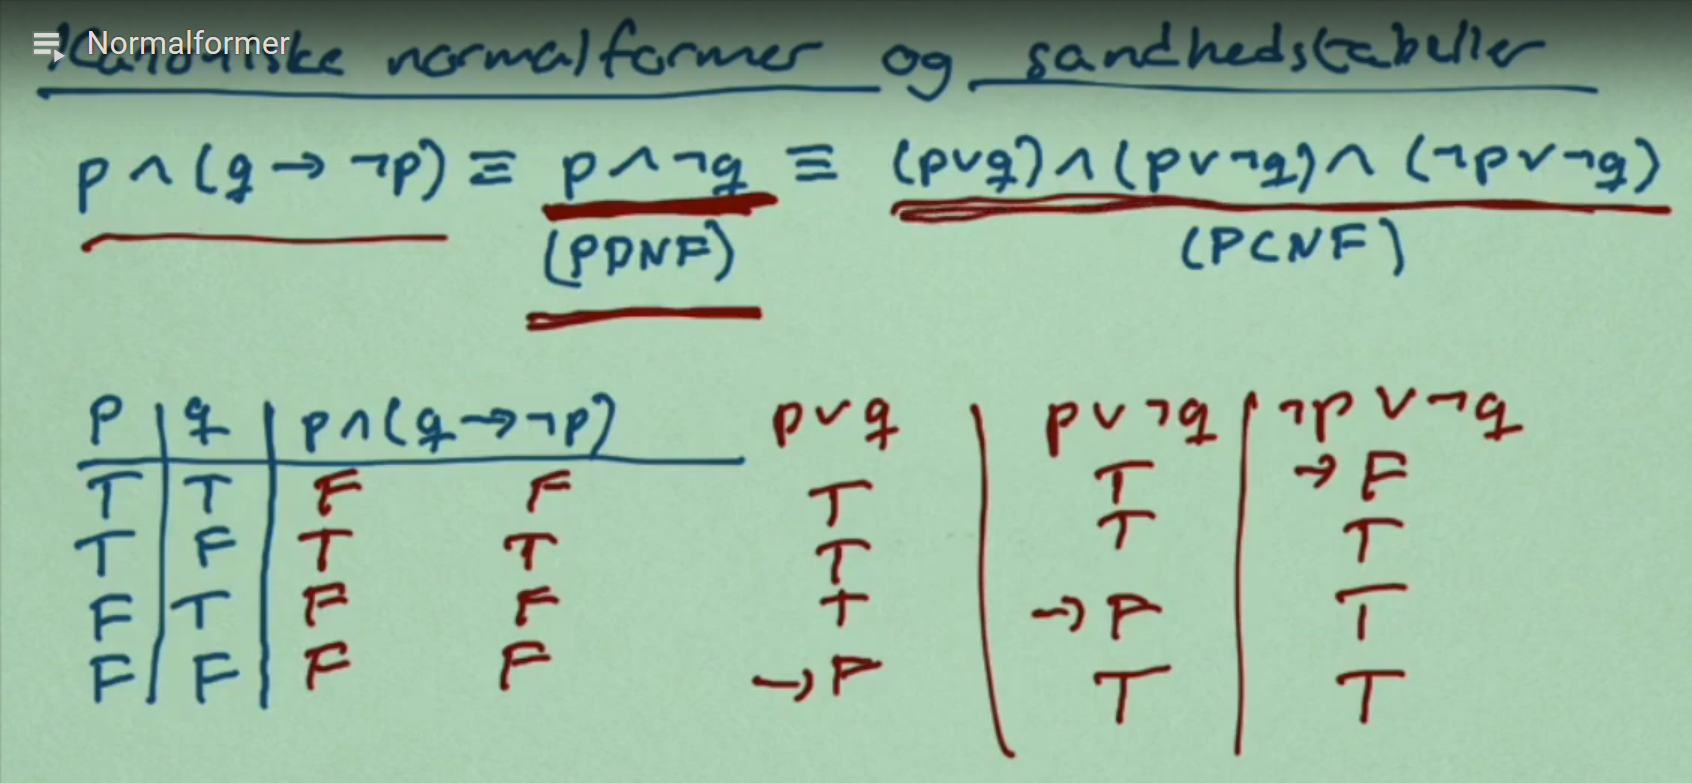 Normalformer
Kanoniske normalformer og sandhedstabeller
p ∧ (q → ¬p) ≡ p ∧ ¬q ≡ (p ∨ q) ∧ (p ∨ ¬q) ∧ (¬p ∨ ¬q)
(PDNF) (PCNF)
p q p ∧ (q → ¬p) p ∨ q p ∨ ¬q ¬p ∨ ¬q
T T F F T T → F
T F T T T T T
F T F F T → F T
F F F F → F T T